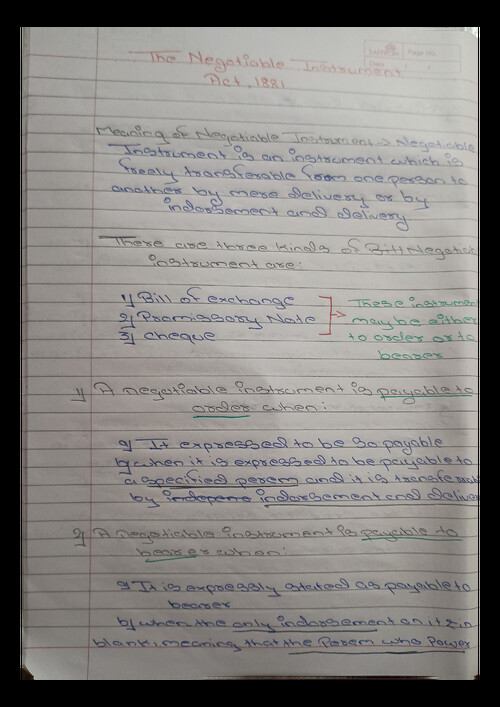 Page No.
Date
The Negotiable Instrument
Act, 1881
Meaning of Negotiable Instrument → Negotiable
Instrument is an instrument which is
freely transferable from one person to
another by mere delivery or by
indorsement and delivery
There are three kinds of Bill Negotia
instrument are:
1) Bill of exchange
2) Promissory Note
3) cheque
These instrumen
may be either
to order or to
bearer
1) A negotiable instrument is payable to
order when:
a) It expressed to be so payable
b) when it is expressed to be payable to
a specified person and it is transferab
by indepene indorsement and deliver
2) A negotiable instrument is payable to
bearer when:
a) It is expressly stated as payable to
bearer
b) when the only indorsement on it is in
blank, meaning that the Person who Power